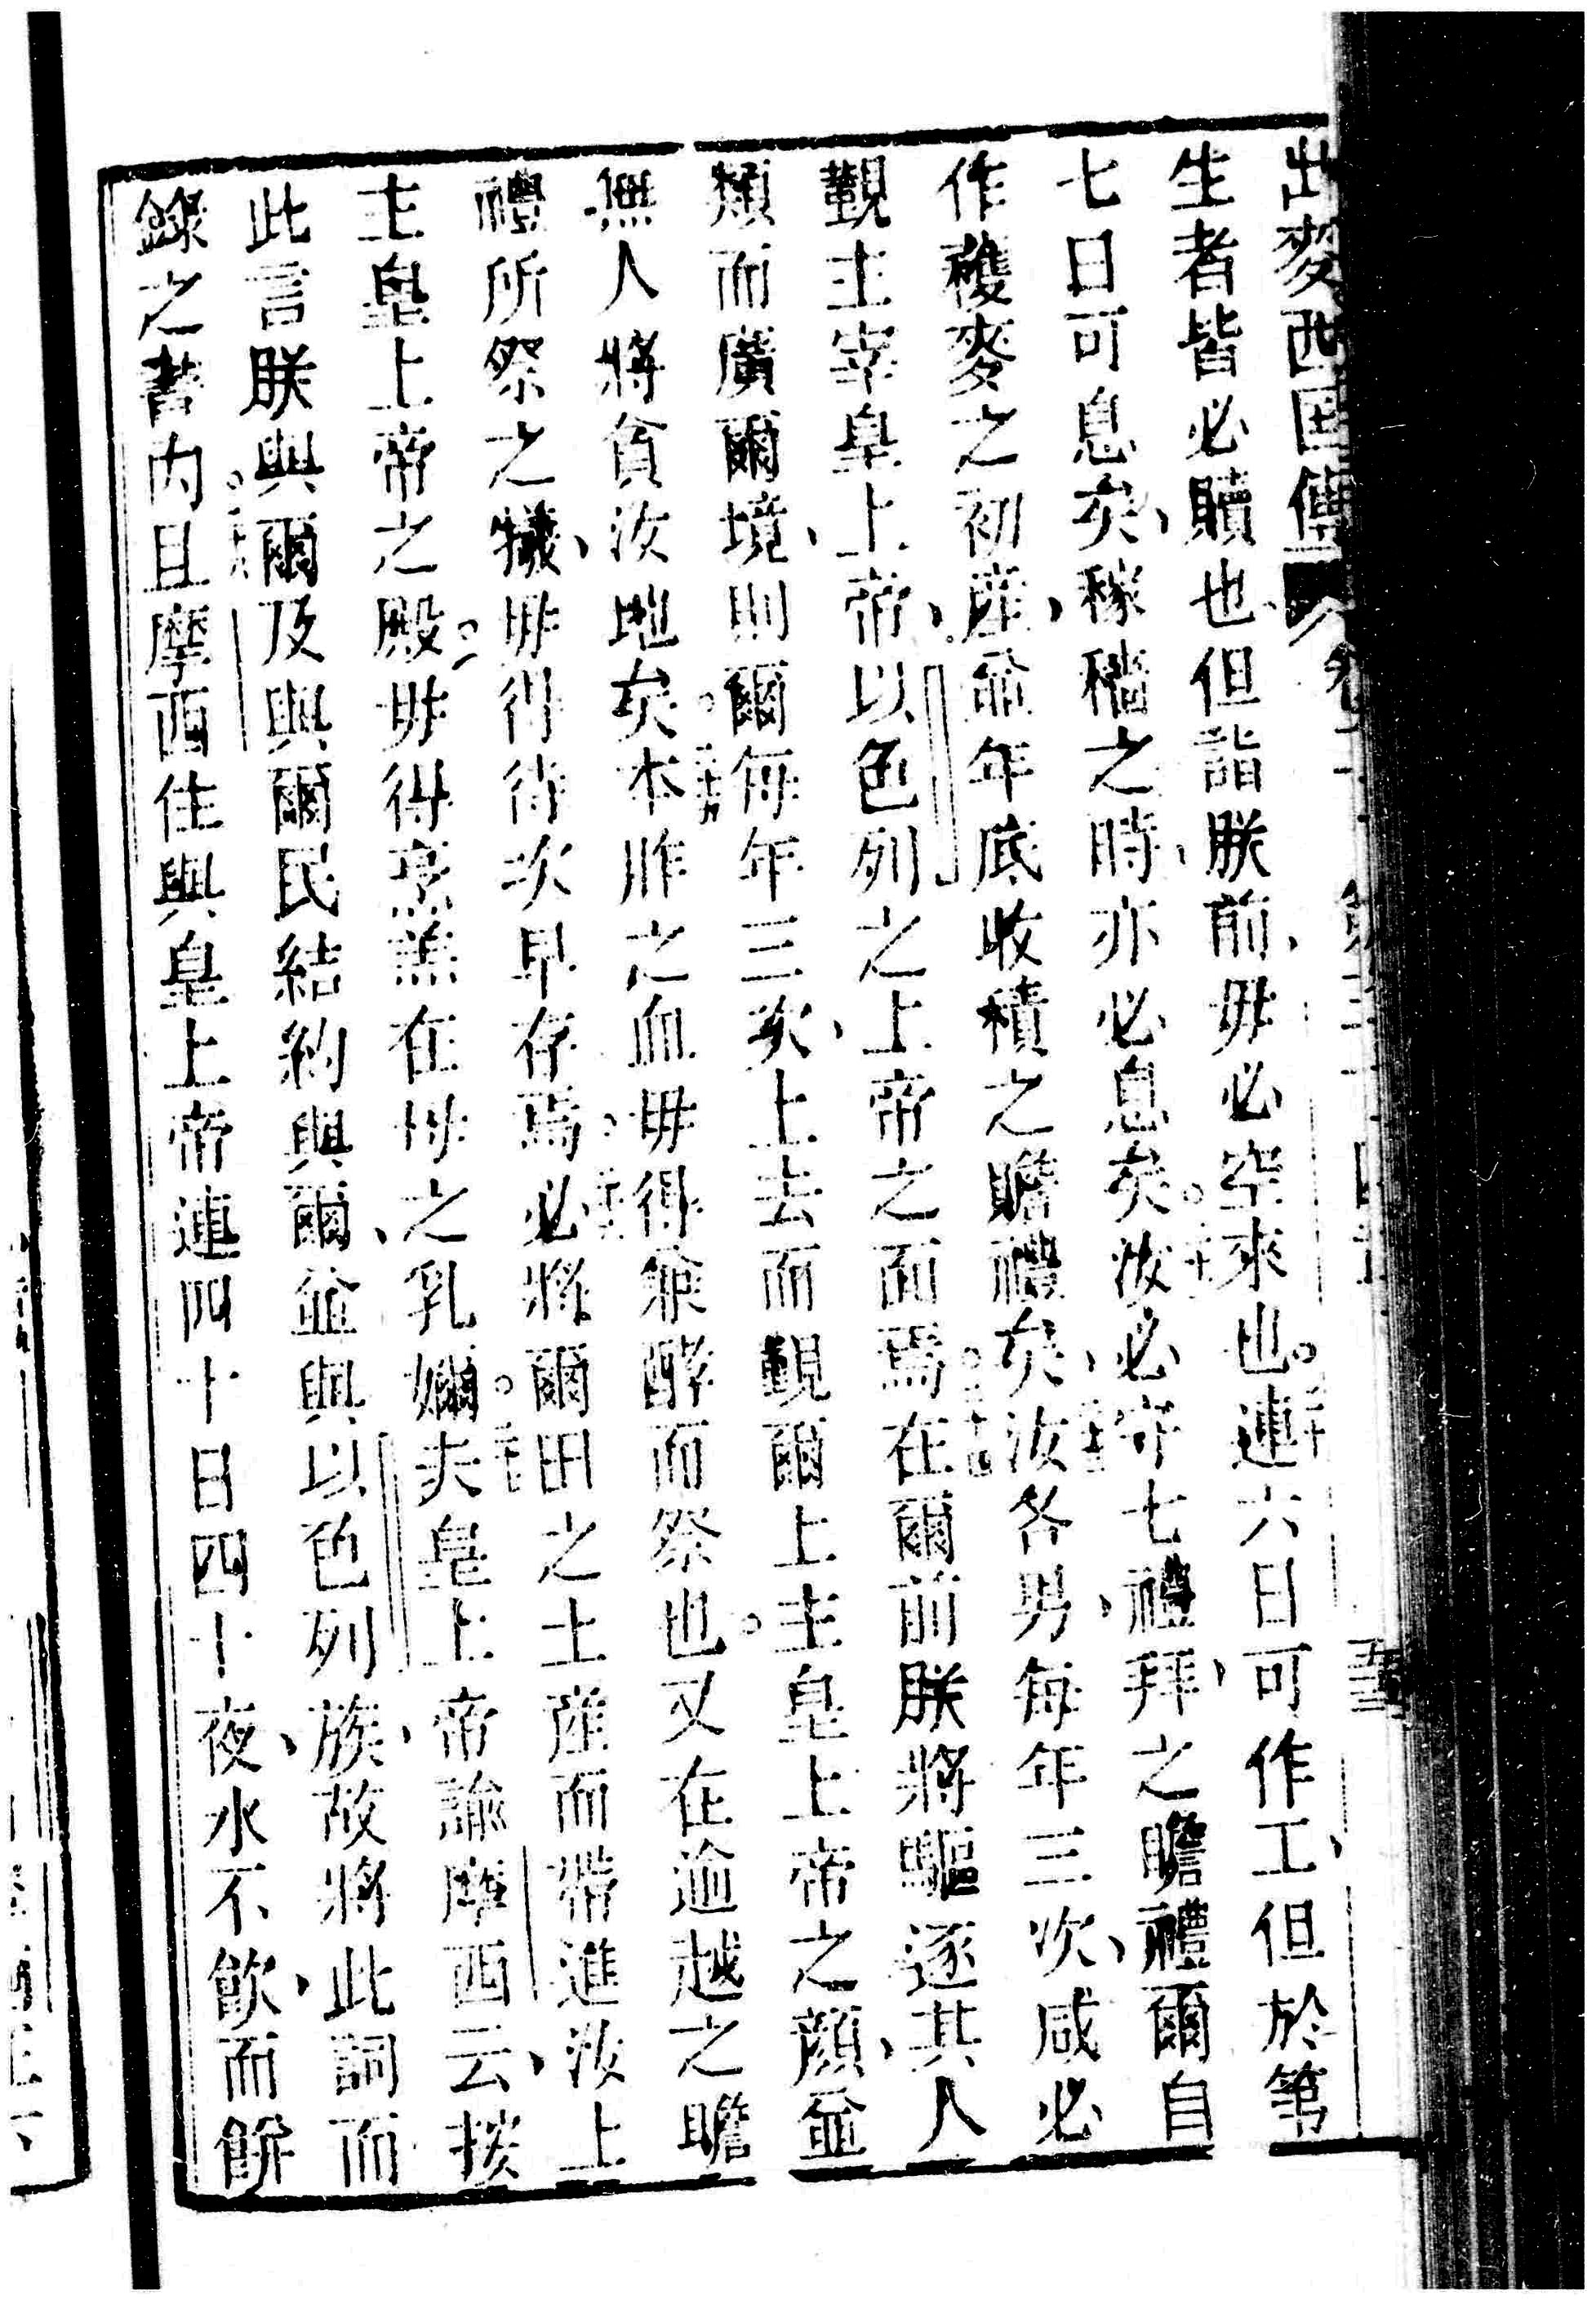 出麥西国傳 第三十四章
生者皆必贖也、但詣朕前、毋必空來也。連六日可作工、但於第
七日可息矣、稼穡之時、亦必息矣。汝必守七禮拜之瞻禮、爾自
作穫麥之初產、並年底收積之瞻禮矣、汝各男、每年三次、咸必
覲主宰皇上帝、以色列之上帝之面焉。在爾前朕將驅逐其人
類而廣爾境、則爾每年三次、上去而覲爾上主皇上帝之顏、並
無人將貪汝地矣。本祚之血毋得兼酵而祭也。又在逾越之瞻
禮所祭之犧、毋得待次早存焉。必將爾田之土產而帶進汝上
主皇上帝之殿。毋得烹羔在母之乳嬭。夫皇上帝諭摩西云、按
此言朕與爾及與爾民結約與爾、並與以色列族、故將此詞而
錄之書内。且摩西住與皇上帝連四十日四十夜、水不飲、而餅